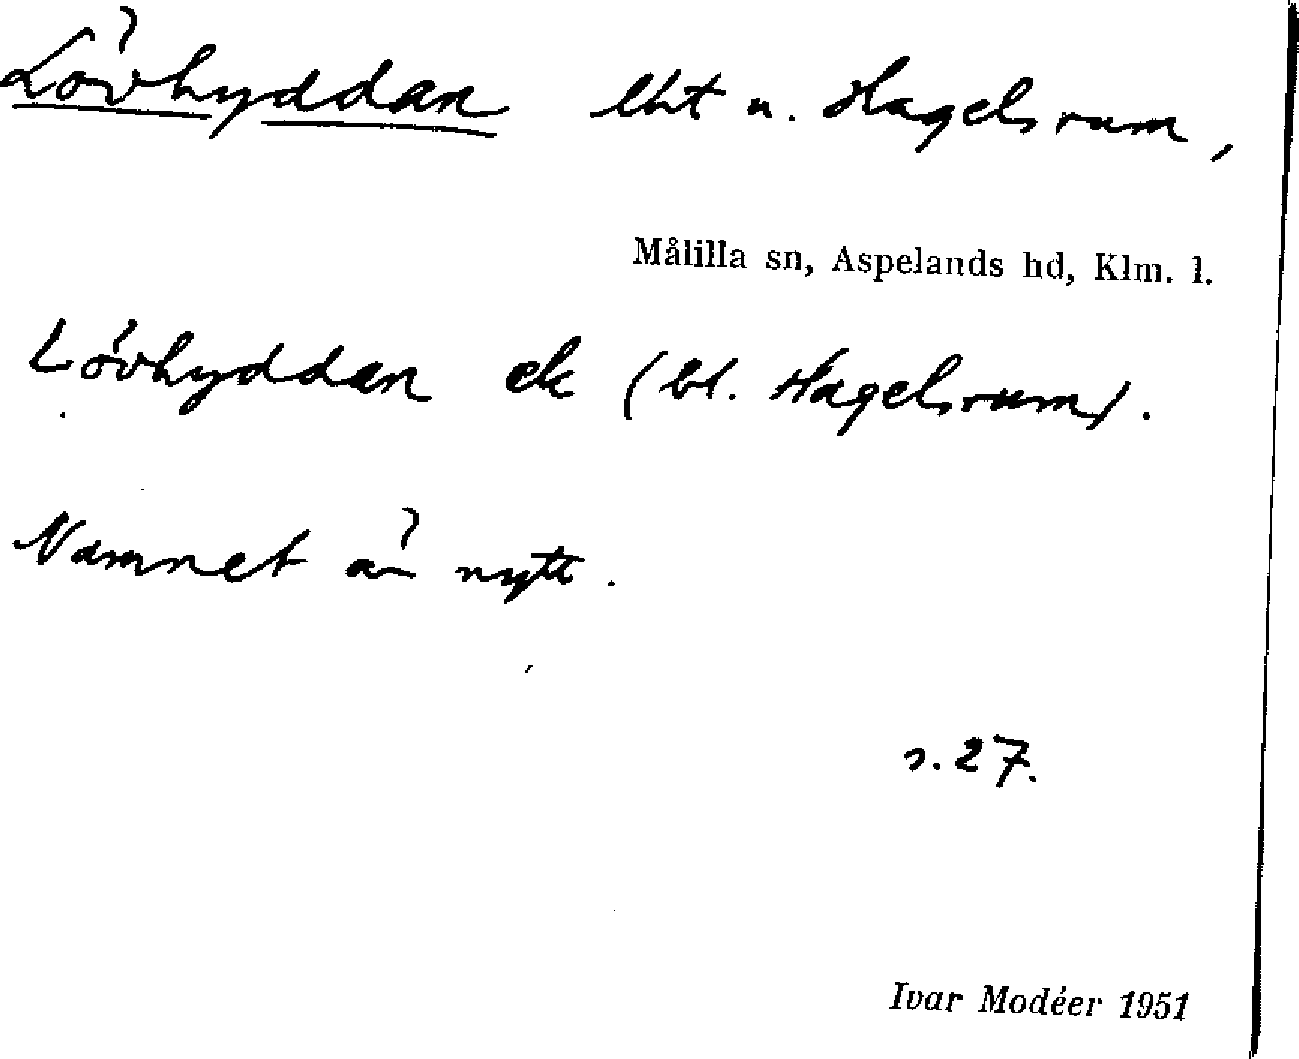 Lövhyddan lht u. Hagelsrum,
Målilla sn, Aspelands hd, Klm. l.
Lövhyddan ek (bl. Hagelsrum).
Namnet är nytt.
s. 27.
Ivar Modéer 1951